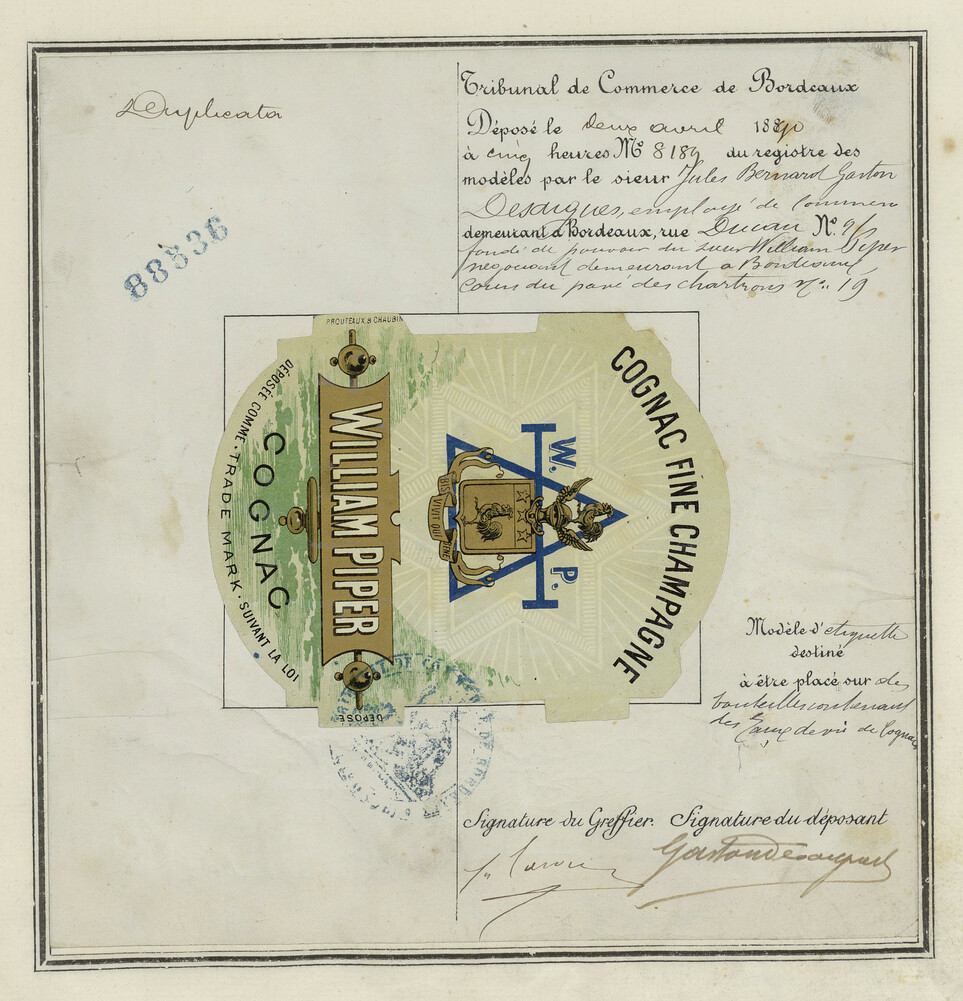 Duplicata
Tribunal de Commerce de Bordeaux
Déposé le deux avril 1890
à cinq heures No 8189 du registre des
modèles par le sieur Jules Bernard Gaston
employé de commerce
demeurant à Bordeaux, rue Ducau No 97
fondé de pouvoir du sieur William Piper
négociant demeurant à Bordeaux,
cours du pavé des chartrons No 19
88836
PROUTEAUX & CHAUBIN
COGNAC FINE CHAMPAGNE
W. P.
BIS VIVIT QUI BENE
WILLIAM PIPER
COGNAC
DÉPOSÉE COMME · TRADE MARK · SUIVANT LA LOI
DÉPOSÉ
Modèle d'étiquette
destiné
à être placé sur des
bouteilles contenant
des Eaux de vie de Cognac
Signature du Greffier. Signature du déposant